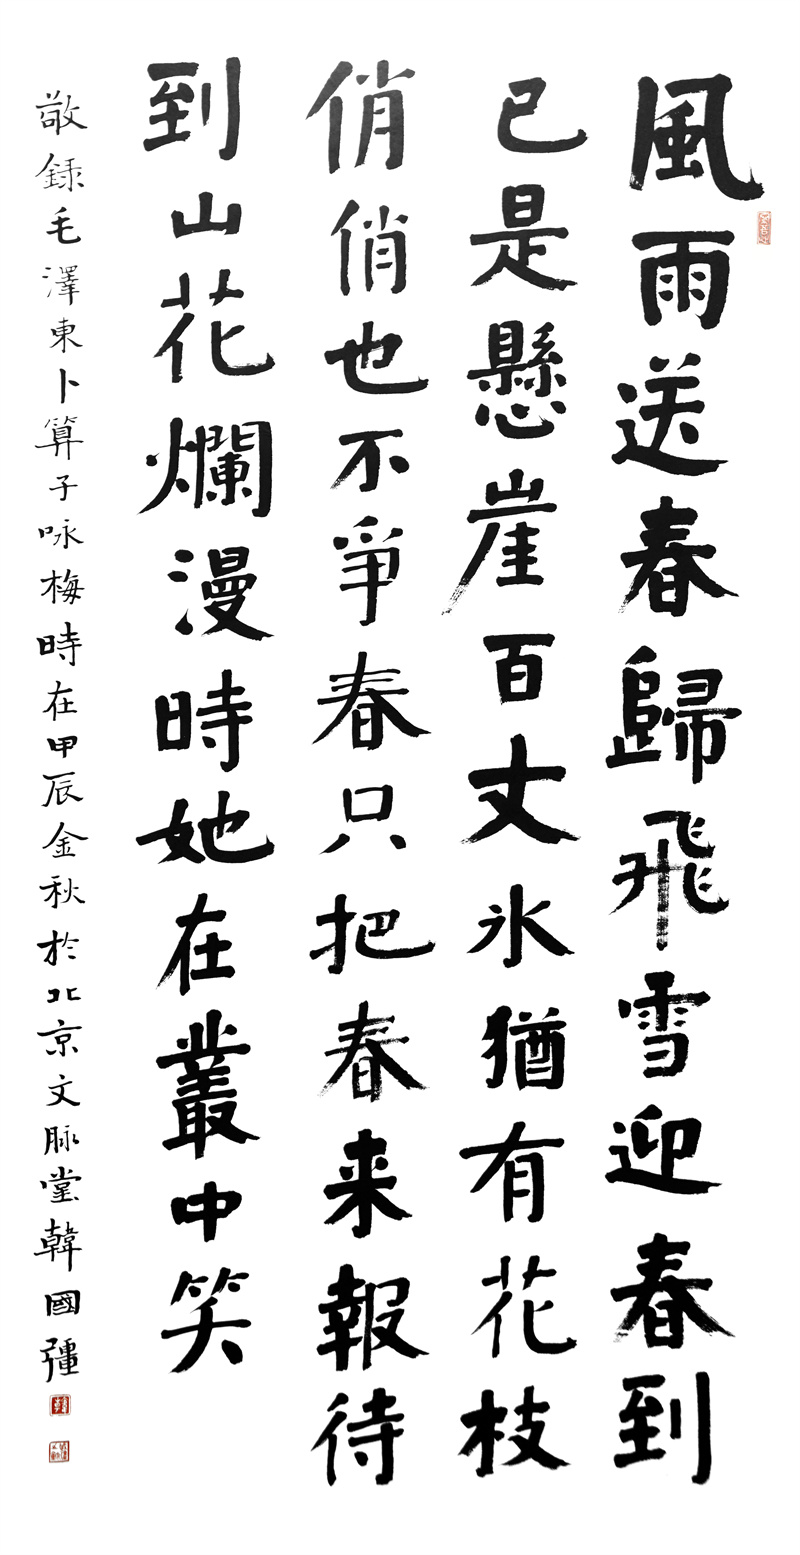 風雨送春歸飛雪迎春到
已是懸崖百丈冰猶有花枝
俏俏也不爭春只把春来報待
到山花爛漫時她在叢中笑
敬録毛澤東卜算子咏梅時在甲辰金秋於北京文脉堂韓國彊